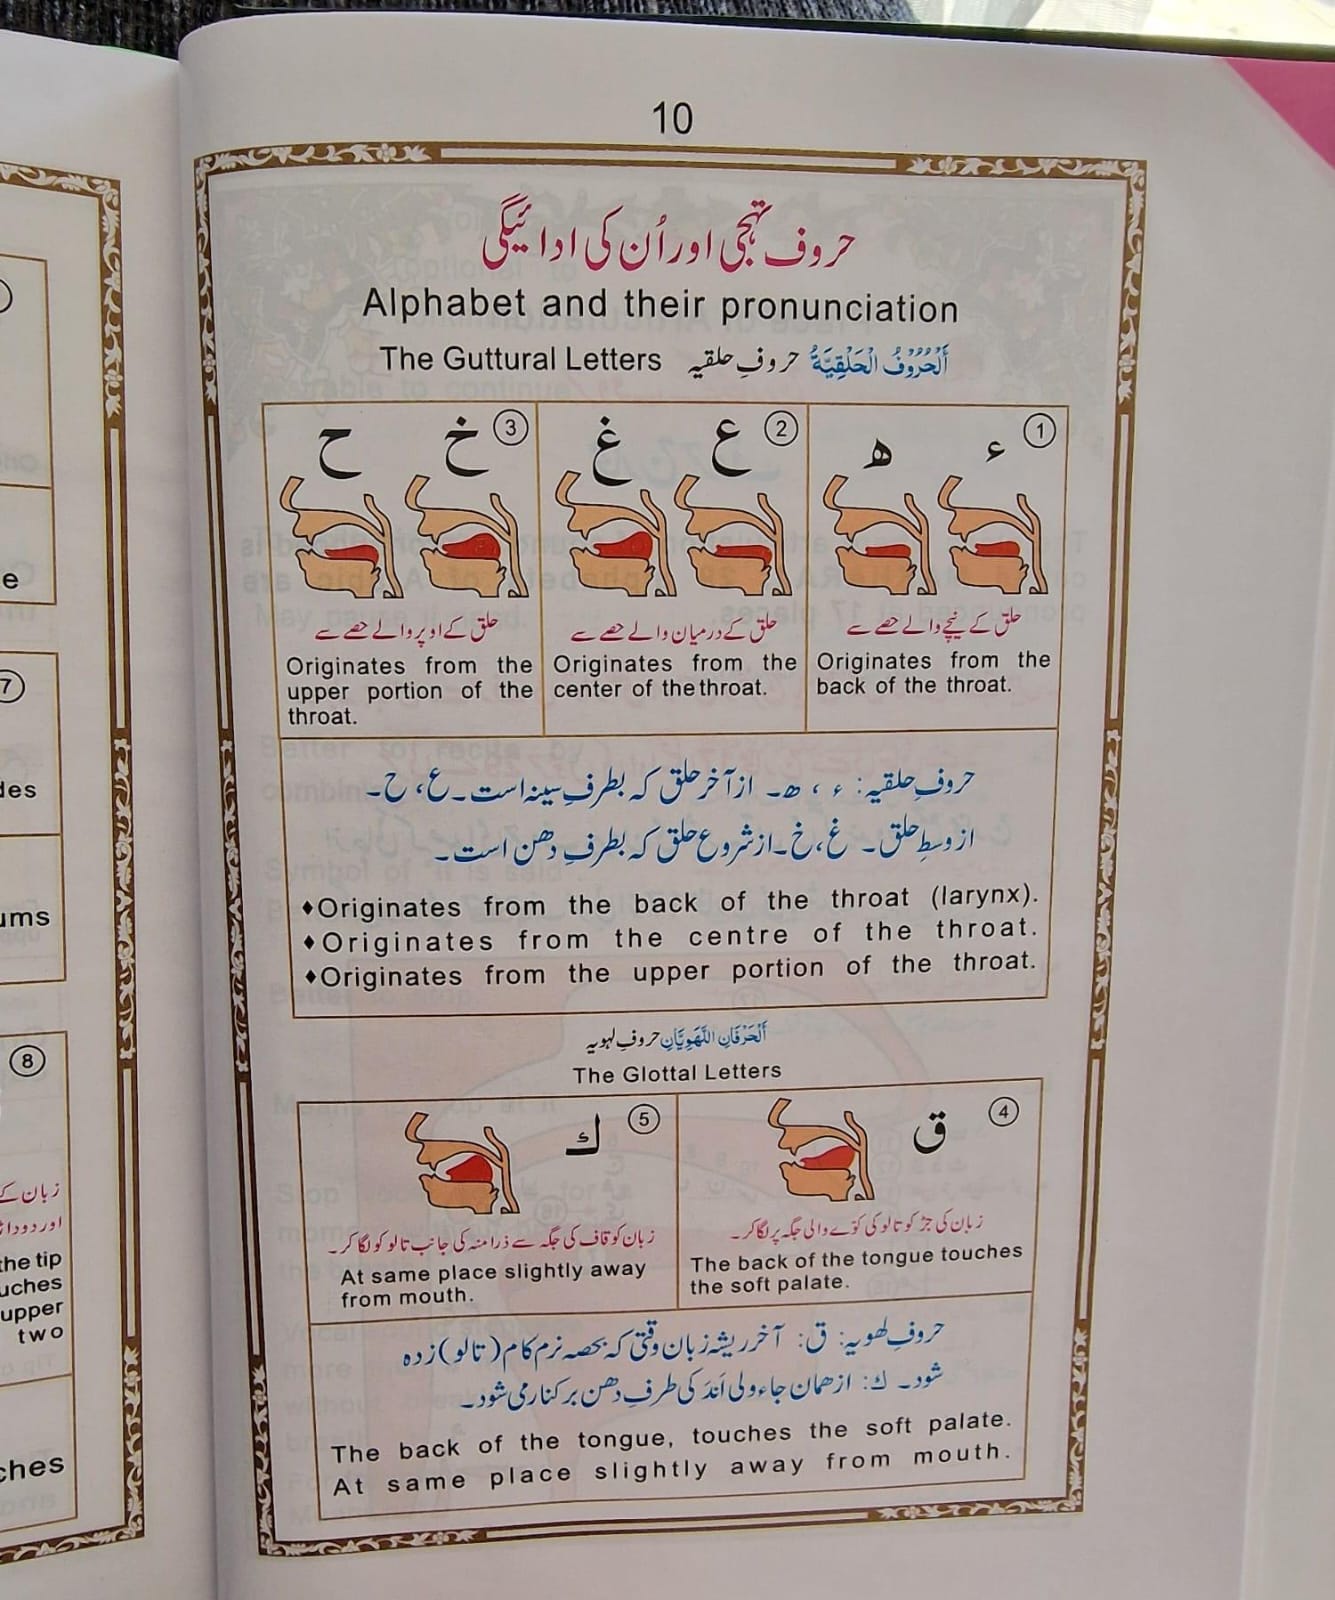 10
حروف تہجی اور اُن کی ادائیگی
Alphabet and their pronunciation
The Guttural Letters حروفِ حلقیہ اَلْحُرُوْفُ الْحَلْقِيَّةُ
1
ء ھ
حلق کے نیچے والے حصے سے
Originates from the
back of the throat.
2
ع غ
حلق کے درمیان والے حصے سے
Originates from the
center of the throat.
3
خ ح
حلق کے اوپر والے حصے سے
Originates from the
upper portion of the
throat.
حروفِ حلقیہ: ء ، ھ۔ از آخر حلق کہ بطرفِ سینہ است۔ ع، ح۔
از وسطِ حلق۔ غ، خ۔ از شروع حلق کہ بطرفِ دھن است۔
♦Originates from the back of the throat (larynx).
♦Originates from the centre of the throat.
♦Originates from the upper portion of the throat.
اَلْحَرْفَانِ اللَّهَوِيَّانِ حروفِ لہویہ
The Glottal Letters
4
ق
زبان کی جڑ کو تالو کی کوّے والی جگہ پر لگا کر۔
The back of the tongue touches
the soft palate.
5
ك
زبان کو قاف کی جگہ سے ذرا منہ کی جانب تالو کو لگا کر۔
At same place slightly away
from mouth.
حروفِ لھویہ: ق: آخر ریشہ زبان وقتی کہ بحصہ نرم کام (تالو) زدہ
شود۔ ك: از ھمان جاء ولی اَندَ کی طرفِ دھن بر کنار می شود۔
The back of the tongue, touches the soft palate.
At same place slightly away from mouth.
e
7
des
ums
8
زبان کے
اور دودا
the tip
uches
upper
two
ches